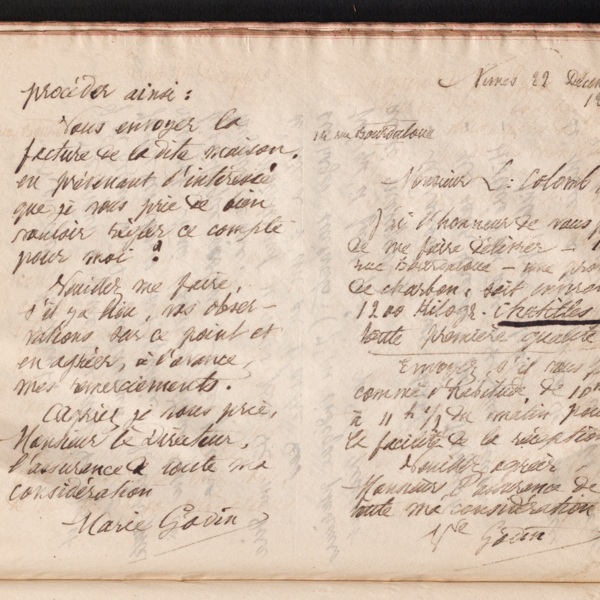 procéder ainsi :
Vous envoyer la
facture de la dite maison,
en prévenant l'intéressé
que je vous prie de bien
vouloir régler ce compte
pour moi ?
Veuillez me faire,
s'il y a lieu, vos obser-
vations sur ce point et
en agréer, à l'avance,
mes remerciements.
Agréer je vous prie,
Monsieur le Directeur,
l'assurance de toute ma
considération
Marie Godin
Nimes 22 Décem
14 rue Bourdaloue
Monsieur L. Colomb
J'ai l'honneur de vous p
de me faire délivrer
rue Bourdaloue - une pro
de charbon, soit environ
1200 Kilogr.
toute première qualité
Envoyer, s'il vous p
comme d'habitude, de 10h
à 11 h ½ du matin pou
la facilité de la réception
Veuillez agréer,
Monsieur l'assurance de
toute ma considération
Vve Godin